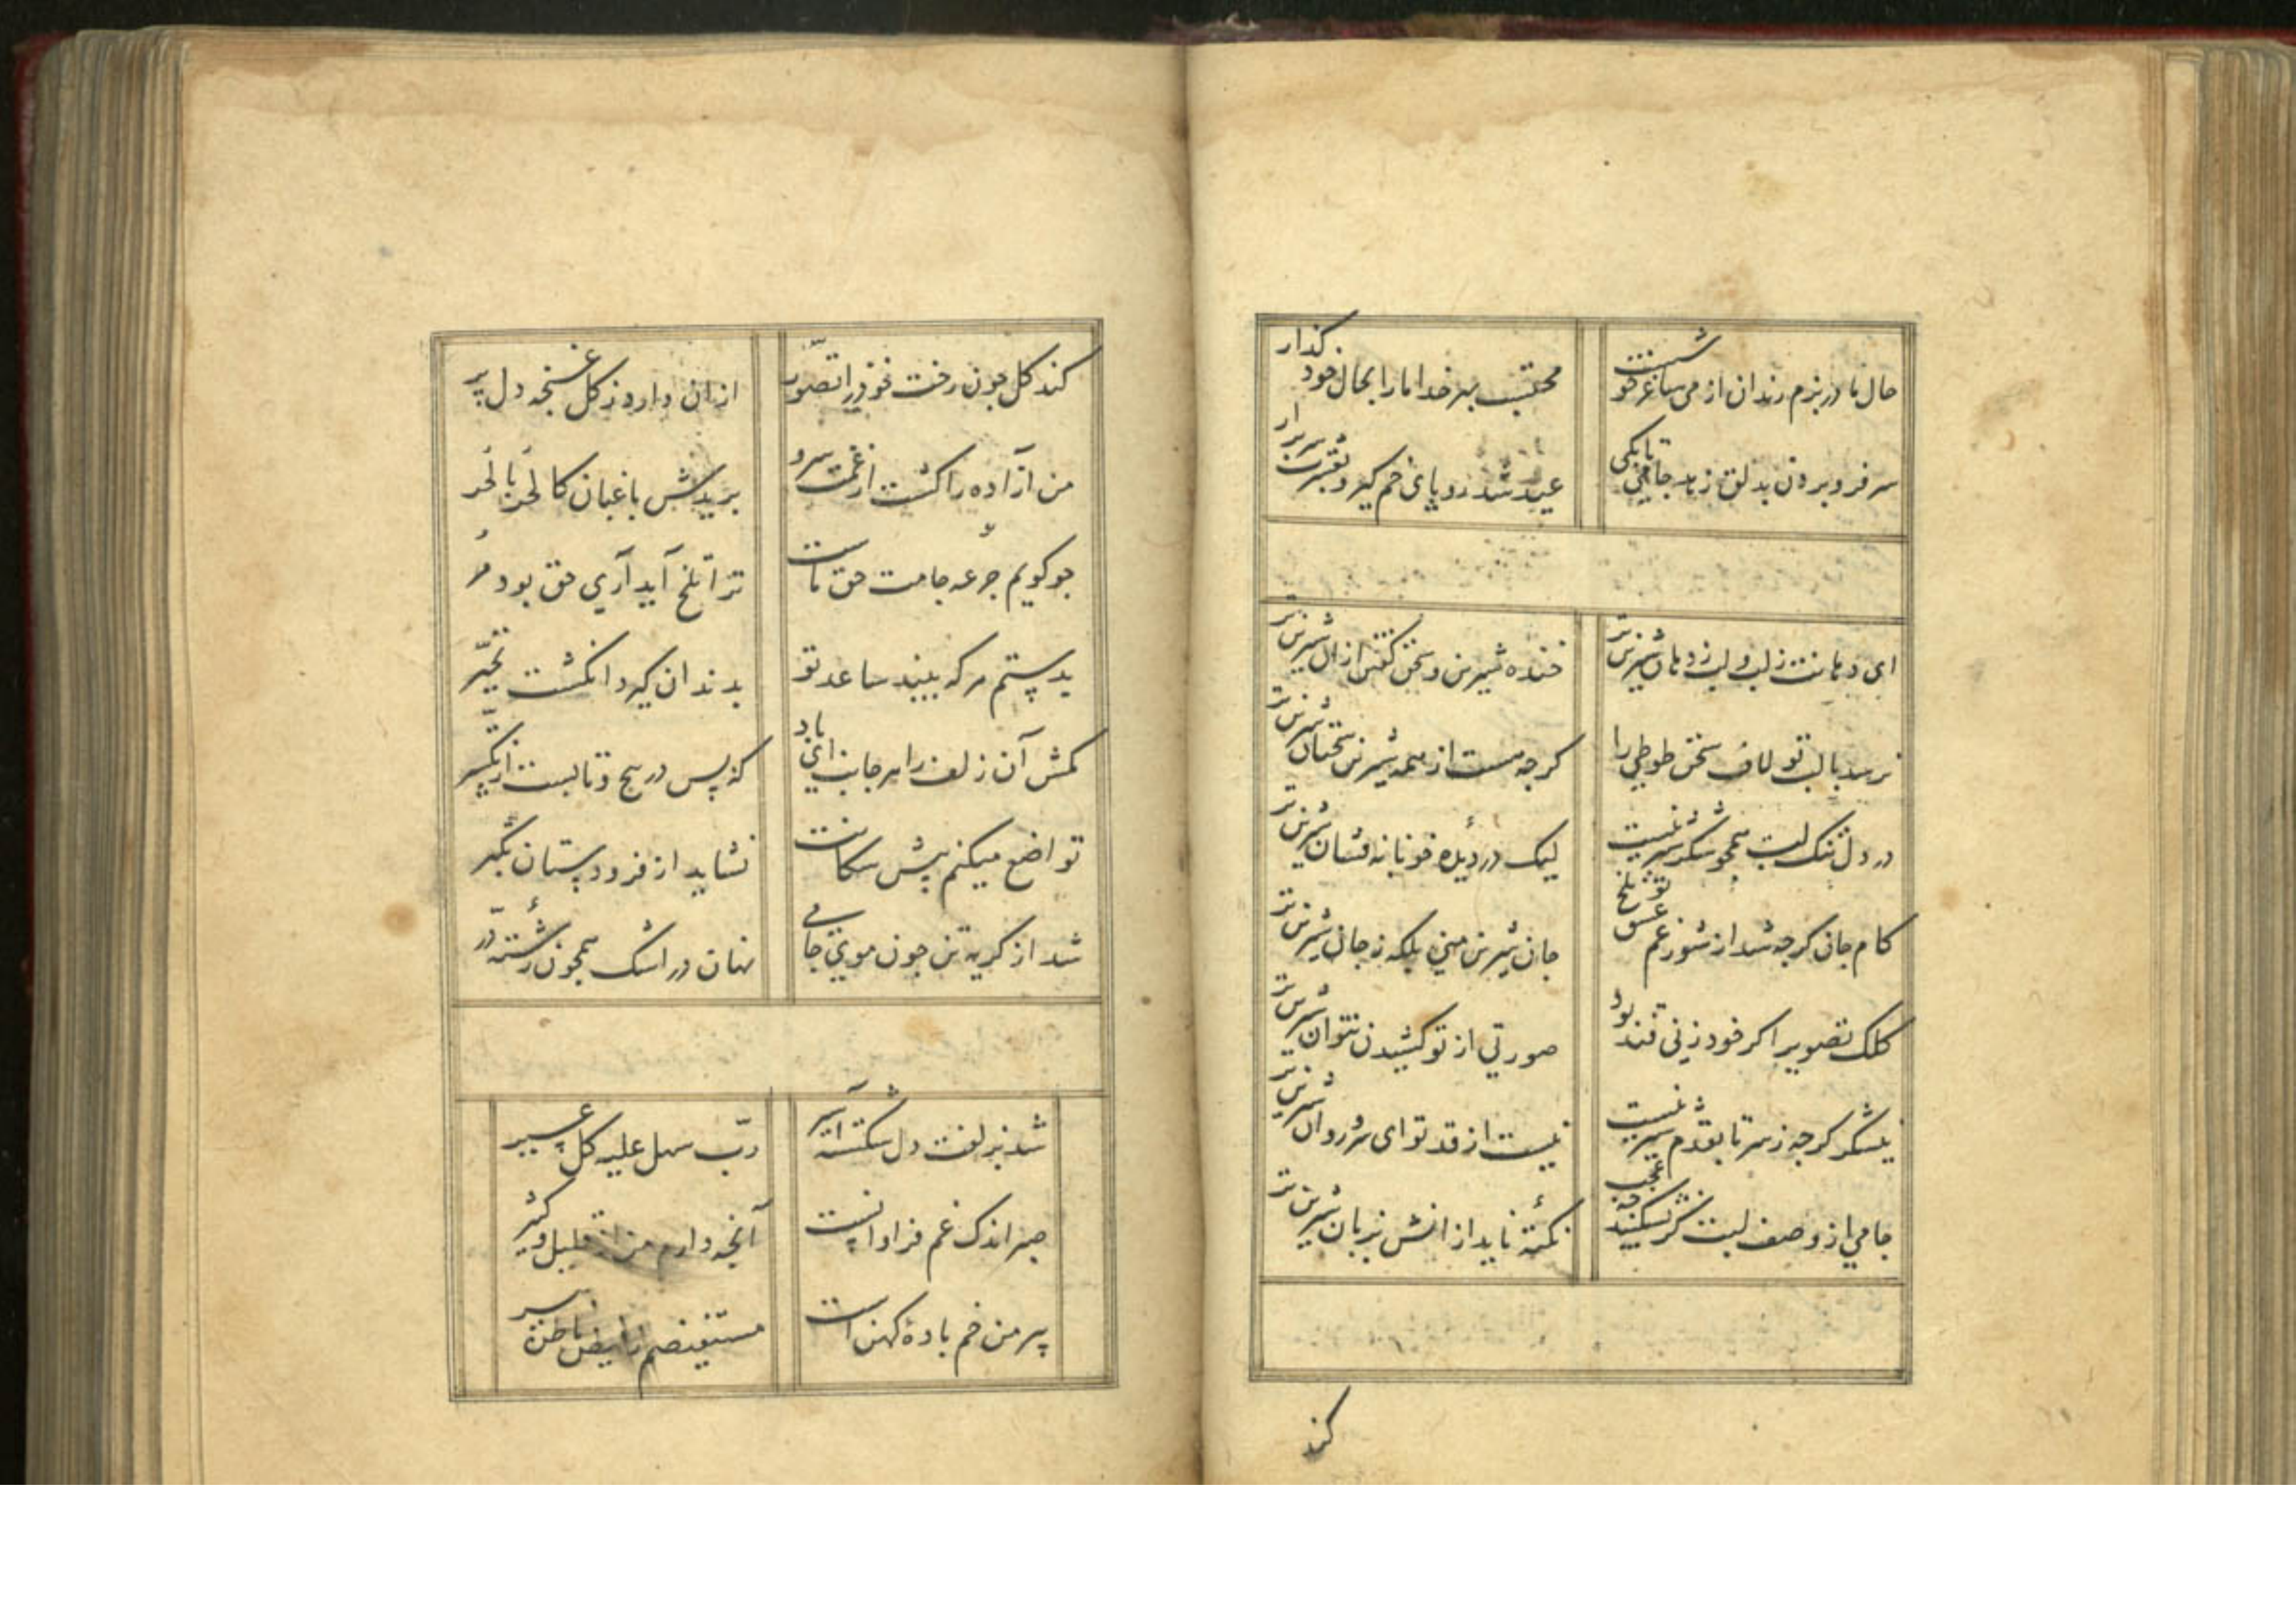 حال ما در بزم رندان از می و ساغر خوشست
محتسب بهر خدا ما را بحال خود گذار
سر فرو بردن بدلق زهد جامی تا بکی
عید شد رو پای خم گیر و بعشرت سر برار
ای دهانت ز لب و لب ز دهان شیرین تر
خنده شیرین و سخن گفتن ازان شیرین تر
نرسد با لب تو لاف سخن طوطی را
کرچه هست از همه شیرین سخنان شیرین تر
در دل تنک لبت همچو شکر شیرینست
لیک در دیده خونابه فشان شیرین تر
کام جان کرچه شد از شور غم عشق تو تلخ
جان شیرین منی بلکه ز جان شیرین تر
کلک تصویر اکر خود ز نی قند بود
صورتی از تو کشیدن نتوان شیرین تر
نیشکر کرچه ز سر تا بقدم شیرینست
نیست از قد تو ای سرو روان شیرین تر
جامی از وصف لبت کر شکند چه عجب
نکته ناید از انش بزبان شیرین تر
کند
کند کل چون رخت خود را تصور
ازان دارد ز کل غنچه دل پر
من آزاده را کشت از غمت سرو
بریدش باغبان کالحر بالحر
چو کویم جرعه جامت حق ماست
ترا تلخ آید آری حق بود مر
بدستم هر که بیند ساعد تو
بدندان کیرد انکشت تحیر
مکش آن زلف را هر جانب ای باد
که بس در پیچ و تابست از تکسر
تواضع میکنم پیش سکانت
نشاید از فرودستان تکبر
شد از کریه تن چون موی جامی
نهان در اشک همچون رشته در
شد بزلفت دل شکسته اسیر
رب سهل علیه کل عسیر
صبر اندک غم فراوانست
آنچه دارم من از قلیل و کثیر
پیر من خم باده کهن است
مستفیضم ز فیض باطن پیر